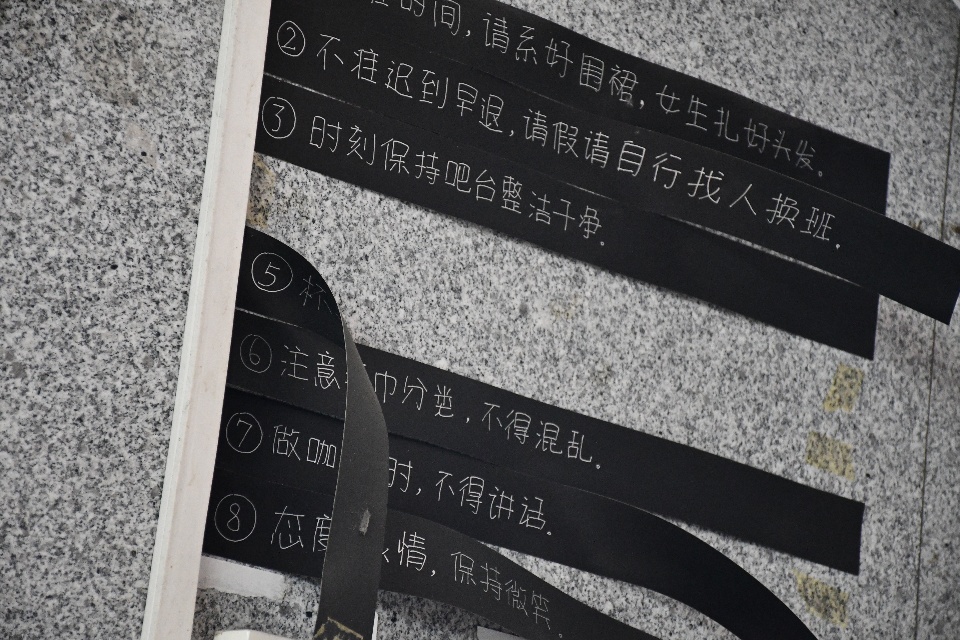 时间，请系好围裙，女生扎好头发。
② 不准迟到早退，请假请自行找人换班．
③ 时刻保持吧台整洁干净．
⑤ 杯
⑥ 注意 巾分类，不得混乱．
⑦ 做咖 时，不得讲话．
⑧ 态度 情，保持微笑．